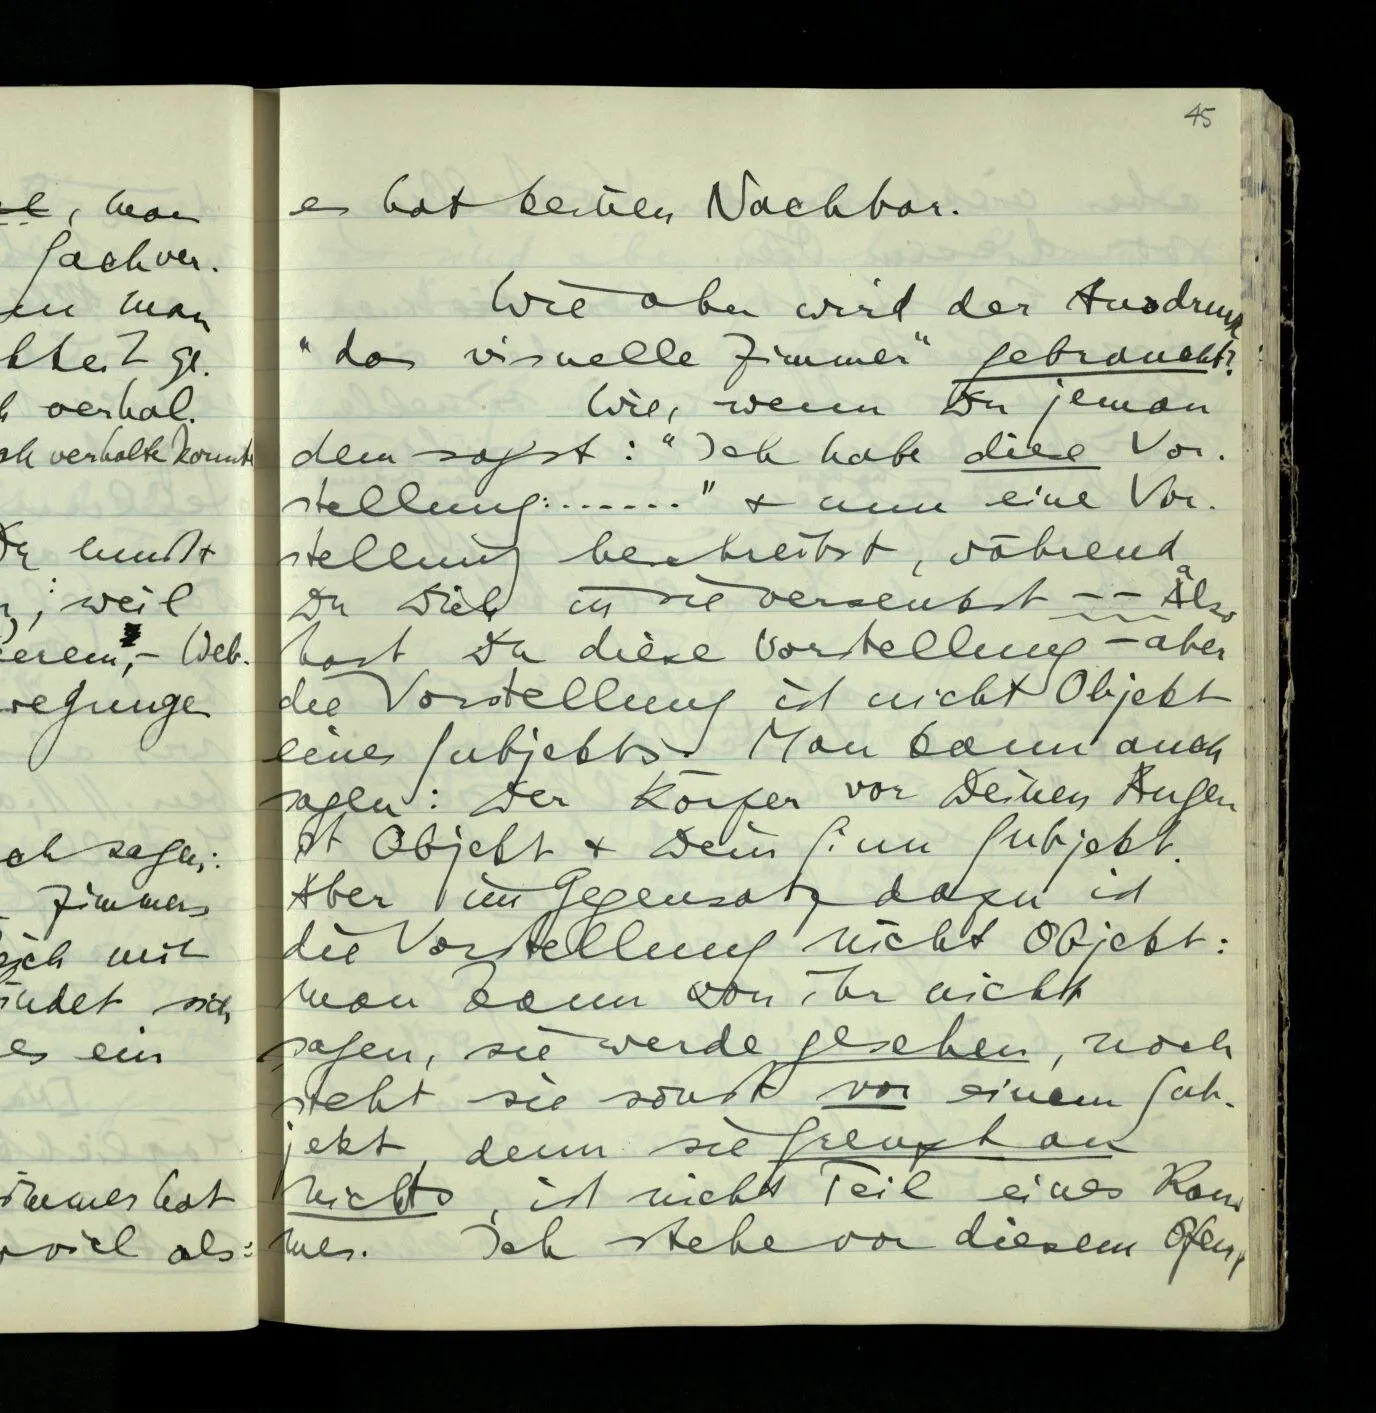 el, man
Sachver-
en man
hkeit ge-
h verhal-
ich verhalte konnte
Du mußt
; weil
erem, – Web.
wegunge
ch sagen:
Zimmers
sich mit
indet sich
es ein
Zimmer hat
viel als:
45
es hat keinen Nachbar.
Wie aber wird der Ausdruck
"das visuelle Zimmer" gebraucht?
Wie, wenn Du jeman
dem sagst: "Ich habe diese Vor-
stellung:......." & nun eine Vor-
stellung beschreibst, während
Du Dich in sie versenkst –– Also
hast Du diese Vorstellung – aber
die Vorstellung ist nicht Objekt
eines Subjekts. Man kann auch
sagen: Der Körper vor Deinen Augen
ist Objekt & Dein Sinn Subjekt.
Aber im Gegensatz dazu ist
die Vorstellung nicht Objekt:
man kann von ihr nicht
sagen, sie werde gesehen, noch
steht sie sonst vor einem Sub-
jekt, denn sie grenzt an
nichts, ist nicht Teil eines Rau
mes. Ich stehe vor diesem Ofen,